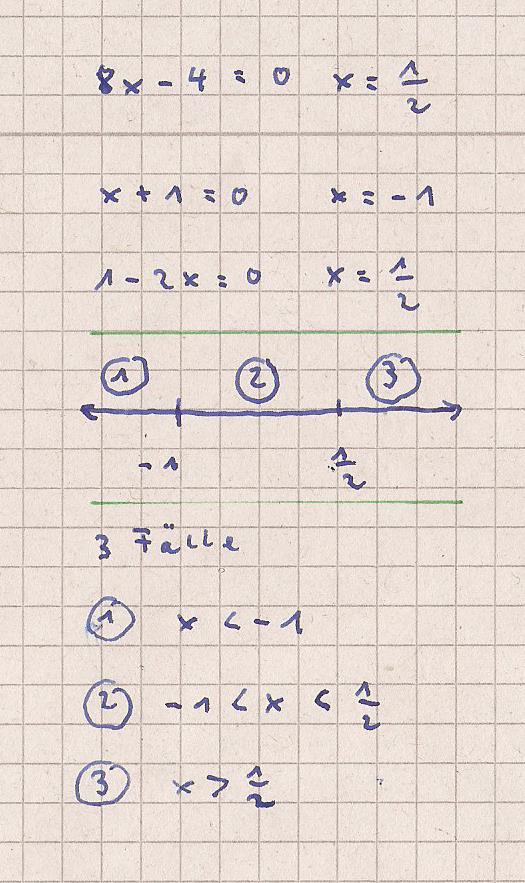 8x - 4 = 0 x = 1/2
x + 1 = 0 x = -1
1 - 2x = 0 x = 1/2
1 2 3
-1 1/2
3 Fälle
1 x < -1
2 -1 < x < 1/2
3 x > 1/2